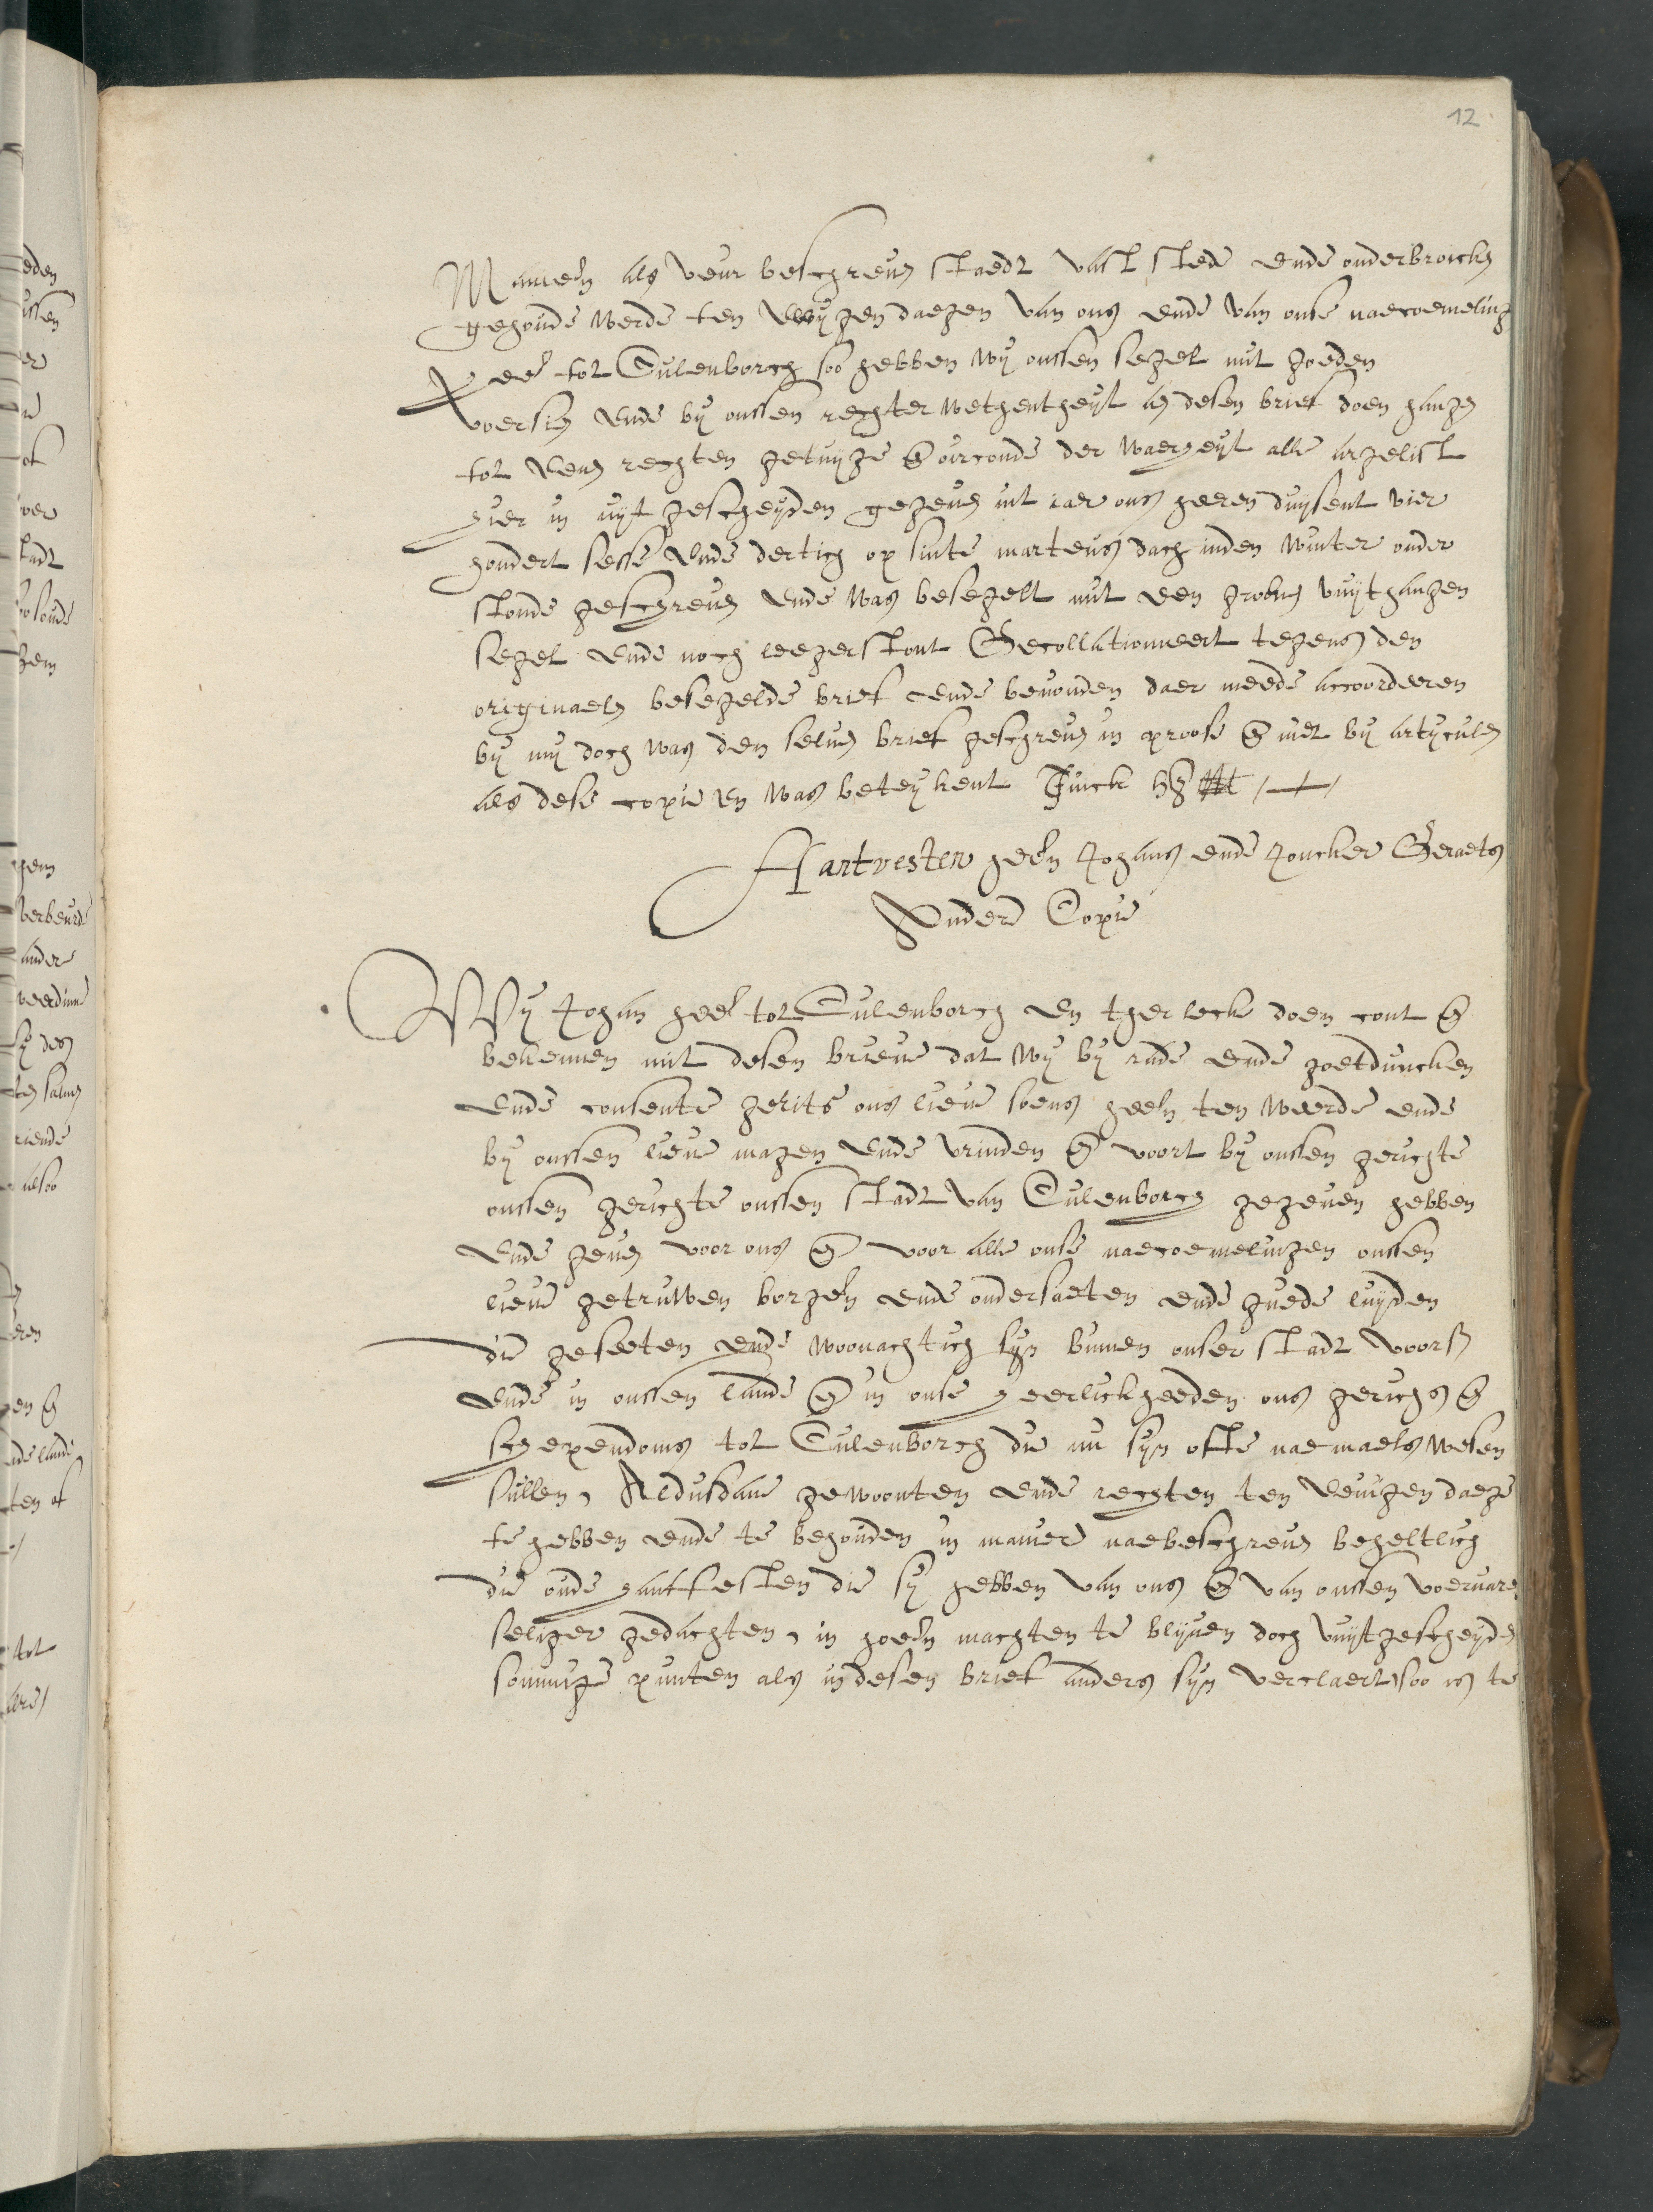 12
Manieren als veur beschreven staedt vast stede ende onderbroicken
gehoude werde ten ewygen daegen van ons ende van onse naecoemeling
Heer tot Culenborch soo hebben wy onssen segel mit goeden
voersien ende by onssen rechter wethentheyt an desen brief doen hangen
tot eenen rechten getuyge en oirconde der waerheyt alle argelist
hier in uyt gescheyden gegeven int iaer ons heeren duysent vier
hondert sesse ende dertich op sinte martens dach inden winter onder
stonde geschreven ende was besegelt mit een groten vuythangen
segel ende noch leeger stont Gecollationneert tegens den
originaelen besegelde brief ende bevonden daer meede accoorderen
by my doch was den selven brief geschreven in proose en niet by articulen
als dese copie en was beteykent
Hantvesten heeren Johans ende Joncker Geraets
Ander Copie
Wy Johan heer tot Culenborch en ther leck doen cont en
bekennen mit desen brieve dat wy by rade ende goetduncken
ende consente gerits ons lieve soens heeren ten weerde ende
by onssen lieve magen ende vrinden en voort by onssen gerichte
onssen gerichte onssen stadt van Culenborch gegeven hebben
ende geven voor ons en voor alle onse naecoemelingen onssen
lieve getruwen borgeren ende ondersaeten ende guede luyden
die geseeten ende woonachtich syn binnen onser stadt voors
ende in onssen lande en in onse heerlickheeden ons gerichs en
schependoms tot Culenborch die nu syn ofte naemaels wesen
sullen, Aldusdane gewoonten ende rechten ten eewigen daege
te hebben ende te behouden in manier naebeschreven beheltlich
die oude hantfesten die sy hebben van ons en van onssen voervaren
seliger gedachten, in hoeren machten te blyven doch vuytgescheyden
sommige punten als in desen brief anders syn verclaert soo is te